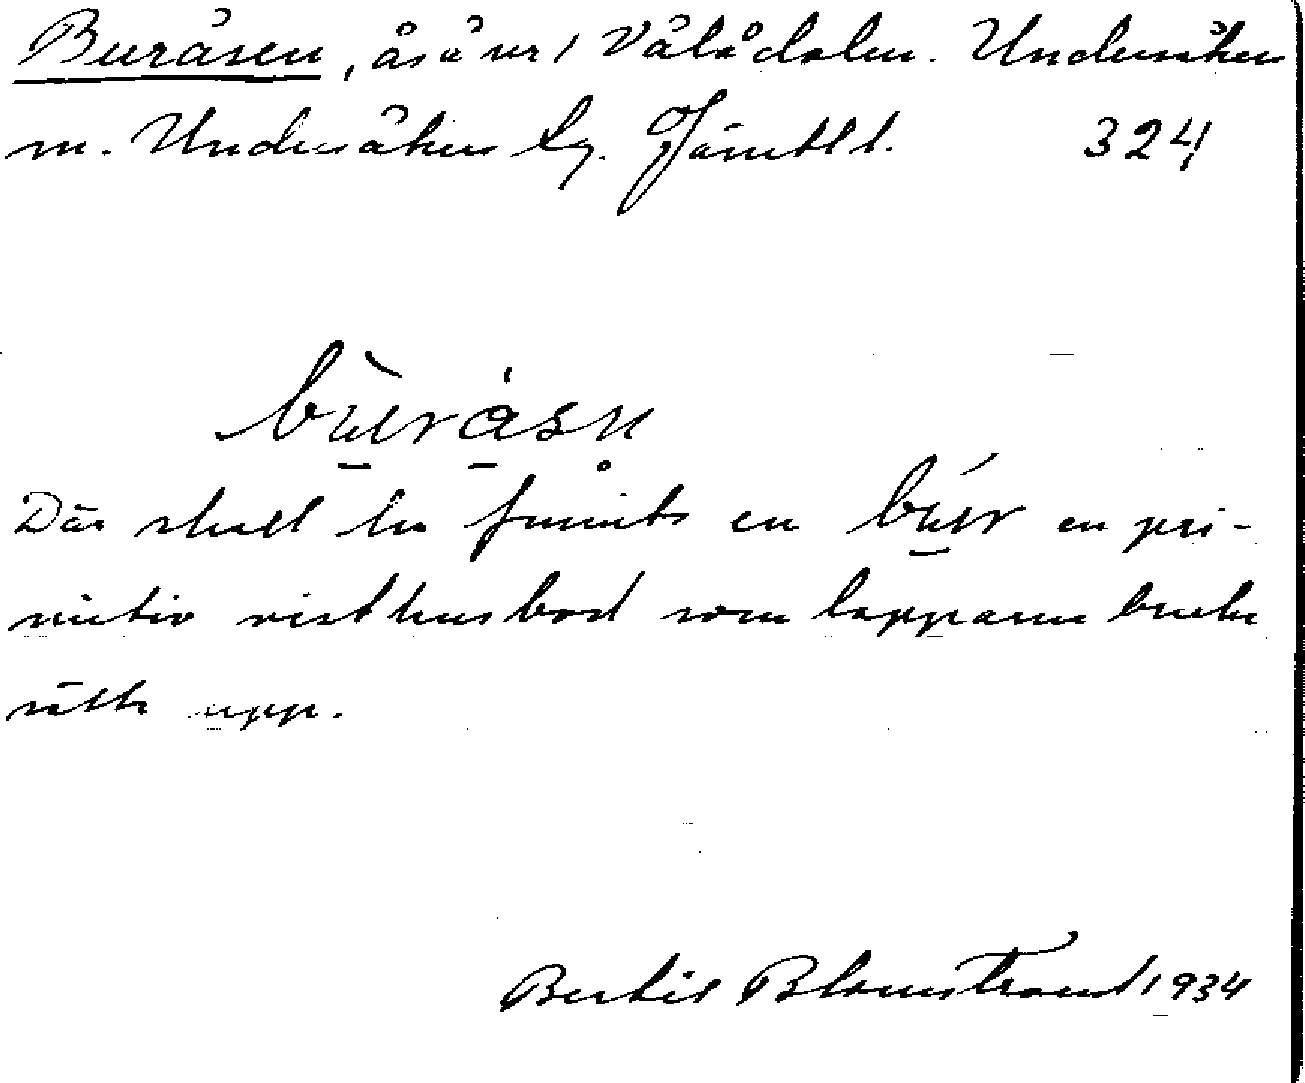 Buråsen, ås å nr 1 Vålådalen. Undersåkers
m. Undersåkers lg. Jämtl l. 324
bùråsn̥
Där skall ha funnits en búr en pri-
mitiv visthusbod som lapparna bruka
sätta upp.
Bertil Blomstrand 1934